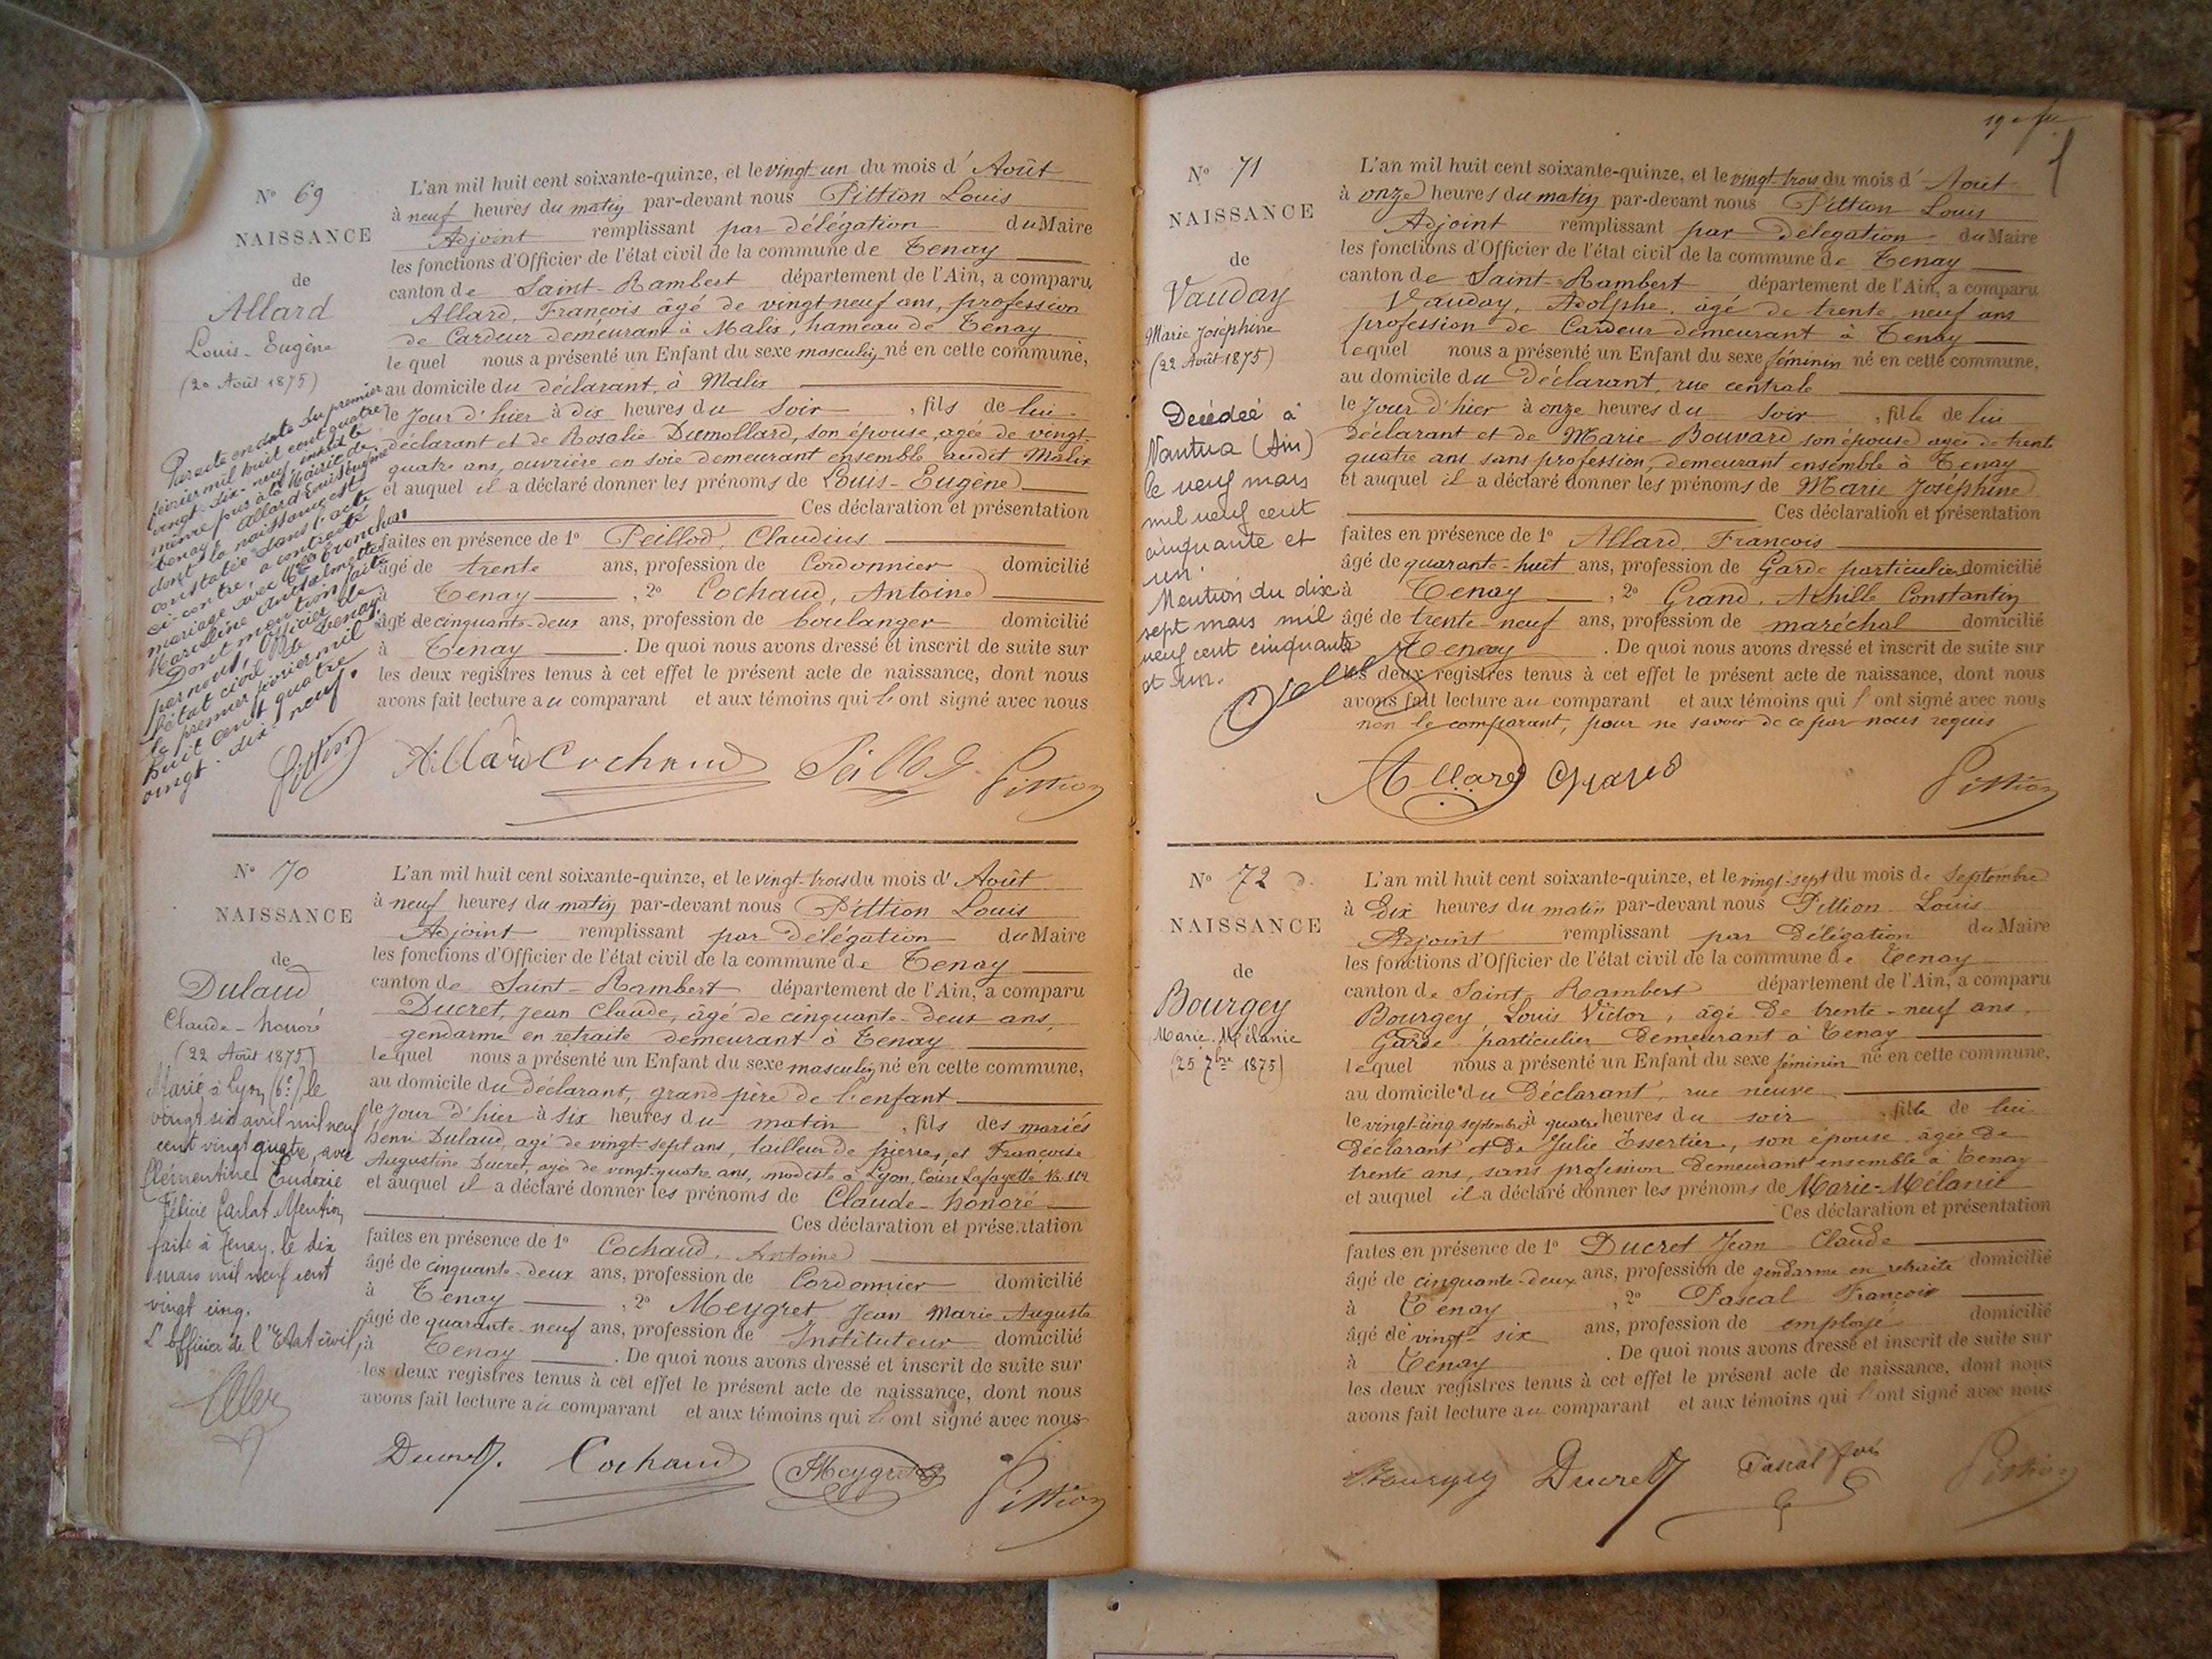 N° 69
NAISSANCE
de
Allard
Louis-Eugène
(20 Août 1875)
Par acte en date du premier
février mil huit cent quatre
vingt-dix-neuf, inscrit le
même jour à la Mairie de
Tenay, Allard Louis Eugène
dont la naissance est
constatée dans l'acte
ci-contre, a contracté
mariage avec
Marcelline
Dont mention faite
par nous, Officier de
l'état civil de Tenay,
le premier février mil
huit cent quatre
vingt-dix-neuf.
Pittion
L'an mil huit cent soixante-quinze, et le vingt-un du mois d'Août
à neuf heures du matin par-devant nous Pittion Louis
Adjoint remplissant par délégation du Maire
les fonctions d'Officier de l'état civil de la commune de Tenay
canton de Saint-Rambert département de l'Ain, a comparu
Allard, François âgé de vingt neuf ans, profession
de Cardeur demeurant à Malix, hameau de Tenay
lequel nous a présenté un Enfant du sexe masculin né en cette commune,
au domicile du déclarant, à Malix
le jour d'hier à dix heures du soir, fils de lui
déclarant et de Rosalie Dumollard, son épouse, agée de vingt-
quatre ans, ouvrière en soie demeurant ensemble audit Malix
et auquel il a déclaré donner les prénoms de Louis-Eugène
Ces déclaration et présentation
faites en présence de 1° Peillod, Claudius
âgé de trente ans, profession de Cordonnier domicilié
à Tenay, 2° Cochaud, Antoine
âgé de cinquante-deux ans, profession de boulanger domicilié
à Tenay. De quoi nous avons dressé et inscrit de suite sur
les deux registres tenus à cet effet le présent acte de naissance, dont nous
avons fait lecture au comparant et aux témoins qui l'ont signé avec nous
Allard Cochaud Peillod Pittion
N° 70
NAISSANCE
de
Dulaud
Claude-honoré
(22 Août 1875)
Marié à Lyon (6e) le
vingt six avril mil neuf
cent vingt quatre, avec
Clémentine Eudoxie
Félicie Carlat Mention
faite à Tenay, le dix
mars mil neuf cent
vingt cinq.
L'officier de l'Etat civil,
L'an mil huit cent soixante-quinze, et le vingt-trois du mois d'Août
à neuf heures du matin par-devant nous Pittion Louis
Adjoint remplissant par délégation du Maire
les fonctions d'Officier de l'état civil de la commune de Tenay
canton de Saint-Rambert département de l'Ain, a comparu
Ducret, Jean Claude, âgé de cinquante-deux ans,
gendarme en retraite demeurant à Tenay
lequel nous a présenté un Enfant du sexe masculin né en cette commune,
au domicile du déclarant, grand père de l'enfant
le jour d'hier à six heures du matin, fils des mariés
henri Dulaud, agé de vingt-sept ans, tailleur de pierres, et Françoise
Augustine Ducret, agée de vingt-quatre ans, modiste à Lyon, Cours Lafayette N° 112
et auquel il a déclaré donner les prénoms de Claude-honoré
Ces déclaration et présentation
faites en présence de 1° Cochaud, Antoine
âgé de cinquante-deux ans, profession de Cordonnier domicilié
à Tenay, 2° Meygret Jean Marie Auguste
âgé de quarante-neuf ans, profession de Instituteur domicilié
à Tenay. De quoi nous avons dressé et inscrit de suite sur
les deux registres tenus à cet effet le présent acte de naissance, dont nous
avons fait lecture au comparant et aux témoins qui l'ont signé avec nous
Ducret. Cochaud Meygret Pittion
N° 71
NAISSANCE
de
Vauday
Marie Joséphine
(22 Août 1875)
Decédeé à
Nantua (Ain)
le neuf mars
mil neuf cent
cinquante et
un.
Mention du dix
sept mars mil
neuf cent cinquante
et un.
L'an mil huit cent soixante-quinze, et le vingt-trois du mois d'Août
à onze heures du matin par-devant nous Pittion Louis
Adjoint remplissant par délégation du Maire
les fonctions d'Officier de l'état civil de la commune de Tenay
canton de Saint-Rambert département de l'Ain, a comparu
Vauday, Adolphe, âgé de trente-neuf ans
profession de Cardeur demeurant à Tenay
lequel nous a présenté un Enfant du sexe féminin né en cette commune,
au domicile du Déclarant, rue centrale
le jour d'hier à onze heures du soir, fille de lui
déclarant et de Marie Bouvard son épouse agée de trente
quatre ans sans profession, demeurant ensemble à Tenay
et auquel il a déclaré donner les prénoms de Marie Joséphine
Ces déclaration et présentation
faites en présence de 1° Allard François
âgé de quarante-huit ans, profession de Garde particulier domicilié
à Tenay, 2° Grand, Achille Constantin
âgé de trente-neuf ans, profession de maréchal domicilié
à Tenay. De quoi nous avons dressé et inscrit de suite sur
les deux registres tenus à cet effet le présent acte de naissance, dont nous
avons fait lecture au comparant et aux témoins qui l'ont signé avec nous
non le comparant, pour ne savoir de ce par nous requis
Allard Grand Pittion
N° 72
NAISSANCE
de
Bourgey
Marie-Mélanie
(25 7bre 1875)
L'an mil huit cent soixante-quinze, et le vingt-sept du mois de Septembre
à dix heures du matin par-devant nous Pittion Louis
Adjoint remplissant par délégation du Maire
les fonctions d'Officier de l'état civil de la commune de Tenay
canton de Saint Rambert département de l'Ain, a comparu
Bourgey, Louis Victor, âgé de trente-neuf ans,
Garde particulier demeurant à Tenay
lequel nous a présenté un Enfant du sexe féminin né en cette commune,
au domicile du Déclarant, rue neuve
le vingt-cinq septembre à quatre heures du soir, fille de lui
déclarant et de Julie Essertier, son épouse âgée de
trente ans, sans profession demeurant ensemble à Tenay
et auquel il a déclaré donner les prénoms de Marie-Mélanie
Ces déclaration et présentation
faites en présence de 1° Ducret Jean Claude
âgé de cinquante-deux ans, profession de gendarme en retraite domicilié
à Tenay, 2° Pascal François
âgé de vingt-six ans, profession de employé domicilié
à Tenay. De quoi nous avons dressé et inscrit de suite sur
les deux registres tenus à cet effet le présent acte de naissance, dont nous
avons fait lecture au comparant et aux témoins qui l'ont signé avec nous
Bourgey Ducret Pascal fois Pittion